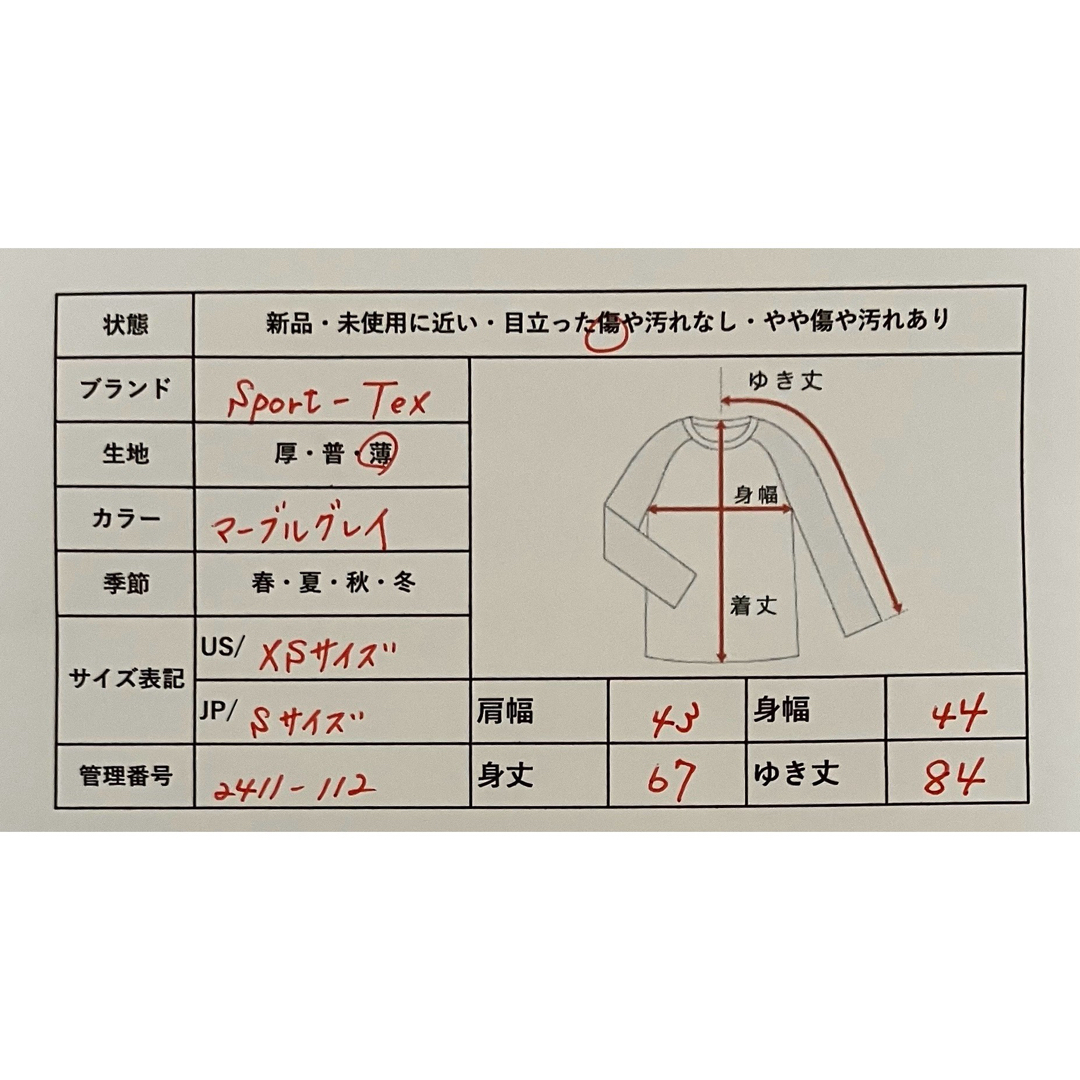 状態 新品・未使用に近い・目立った傷や汚れなし・やや傷や汚れあり
ブランド Sport-Tex
生地 厚・普・薄
カラー マーブルグレイ
季節 春・夏・秋・冬
サイズ表記
US/ XSサイズ
JP/ Sサイズ
管理番号 2411-112
ゆき丈
身幅
着丈
肩幅 43 身幅 44
身丈 67 ゆき丈 84